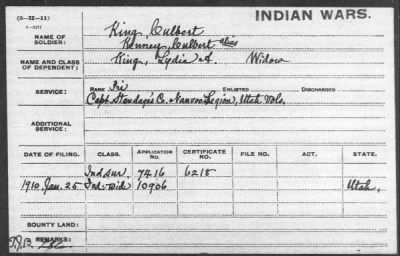 (3-III-11)
INDIAN WARS.
NAME OF SOLDIER: King, Culbert
Kenney, Culbert alias
NAME AND CLASS OF DEPENDENT: King, Lydia A. Widow
SERVICE: RANK Pri ENLISTED DISCHARGED
Capt. Standage's Co. Nauvoo Legion, Utah Vols.
ADDITIONAL SERVICE:
DATE OF FILING. CLASS. APPLICATION No. CERTIFICATE No. FILE NO. ACT. STATE.
Ind sur. 7416 6218
1910 Jan. 25 Ind. Wid. 10906 Utah.
BOUNTY LAND:
REMARKS: